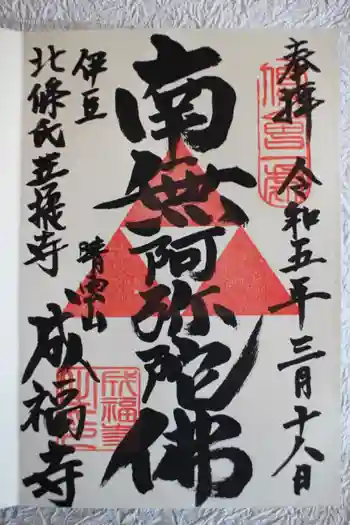 奉拝 令和五年三月十八日
南無阿弥陀佛
伊豆
北條氏菩提寺
晴雲山
成福寺
成福寺